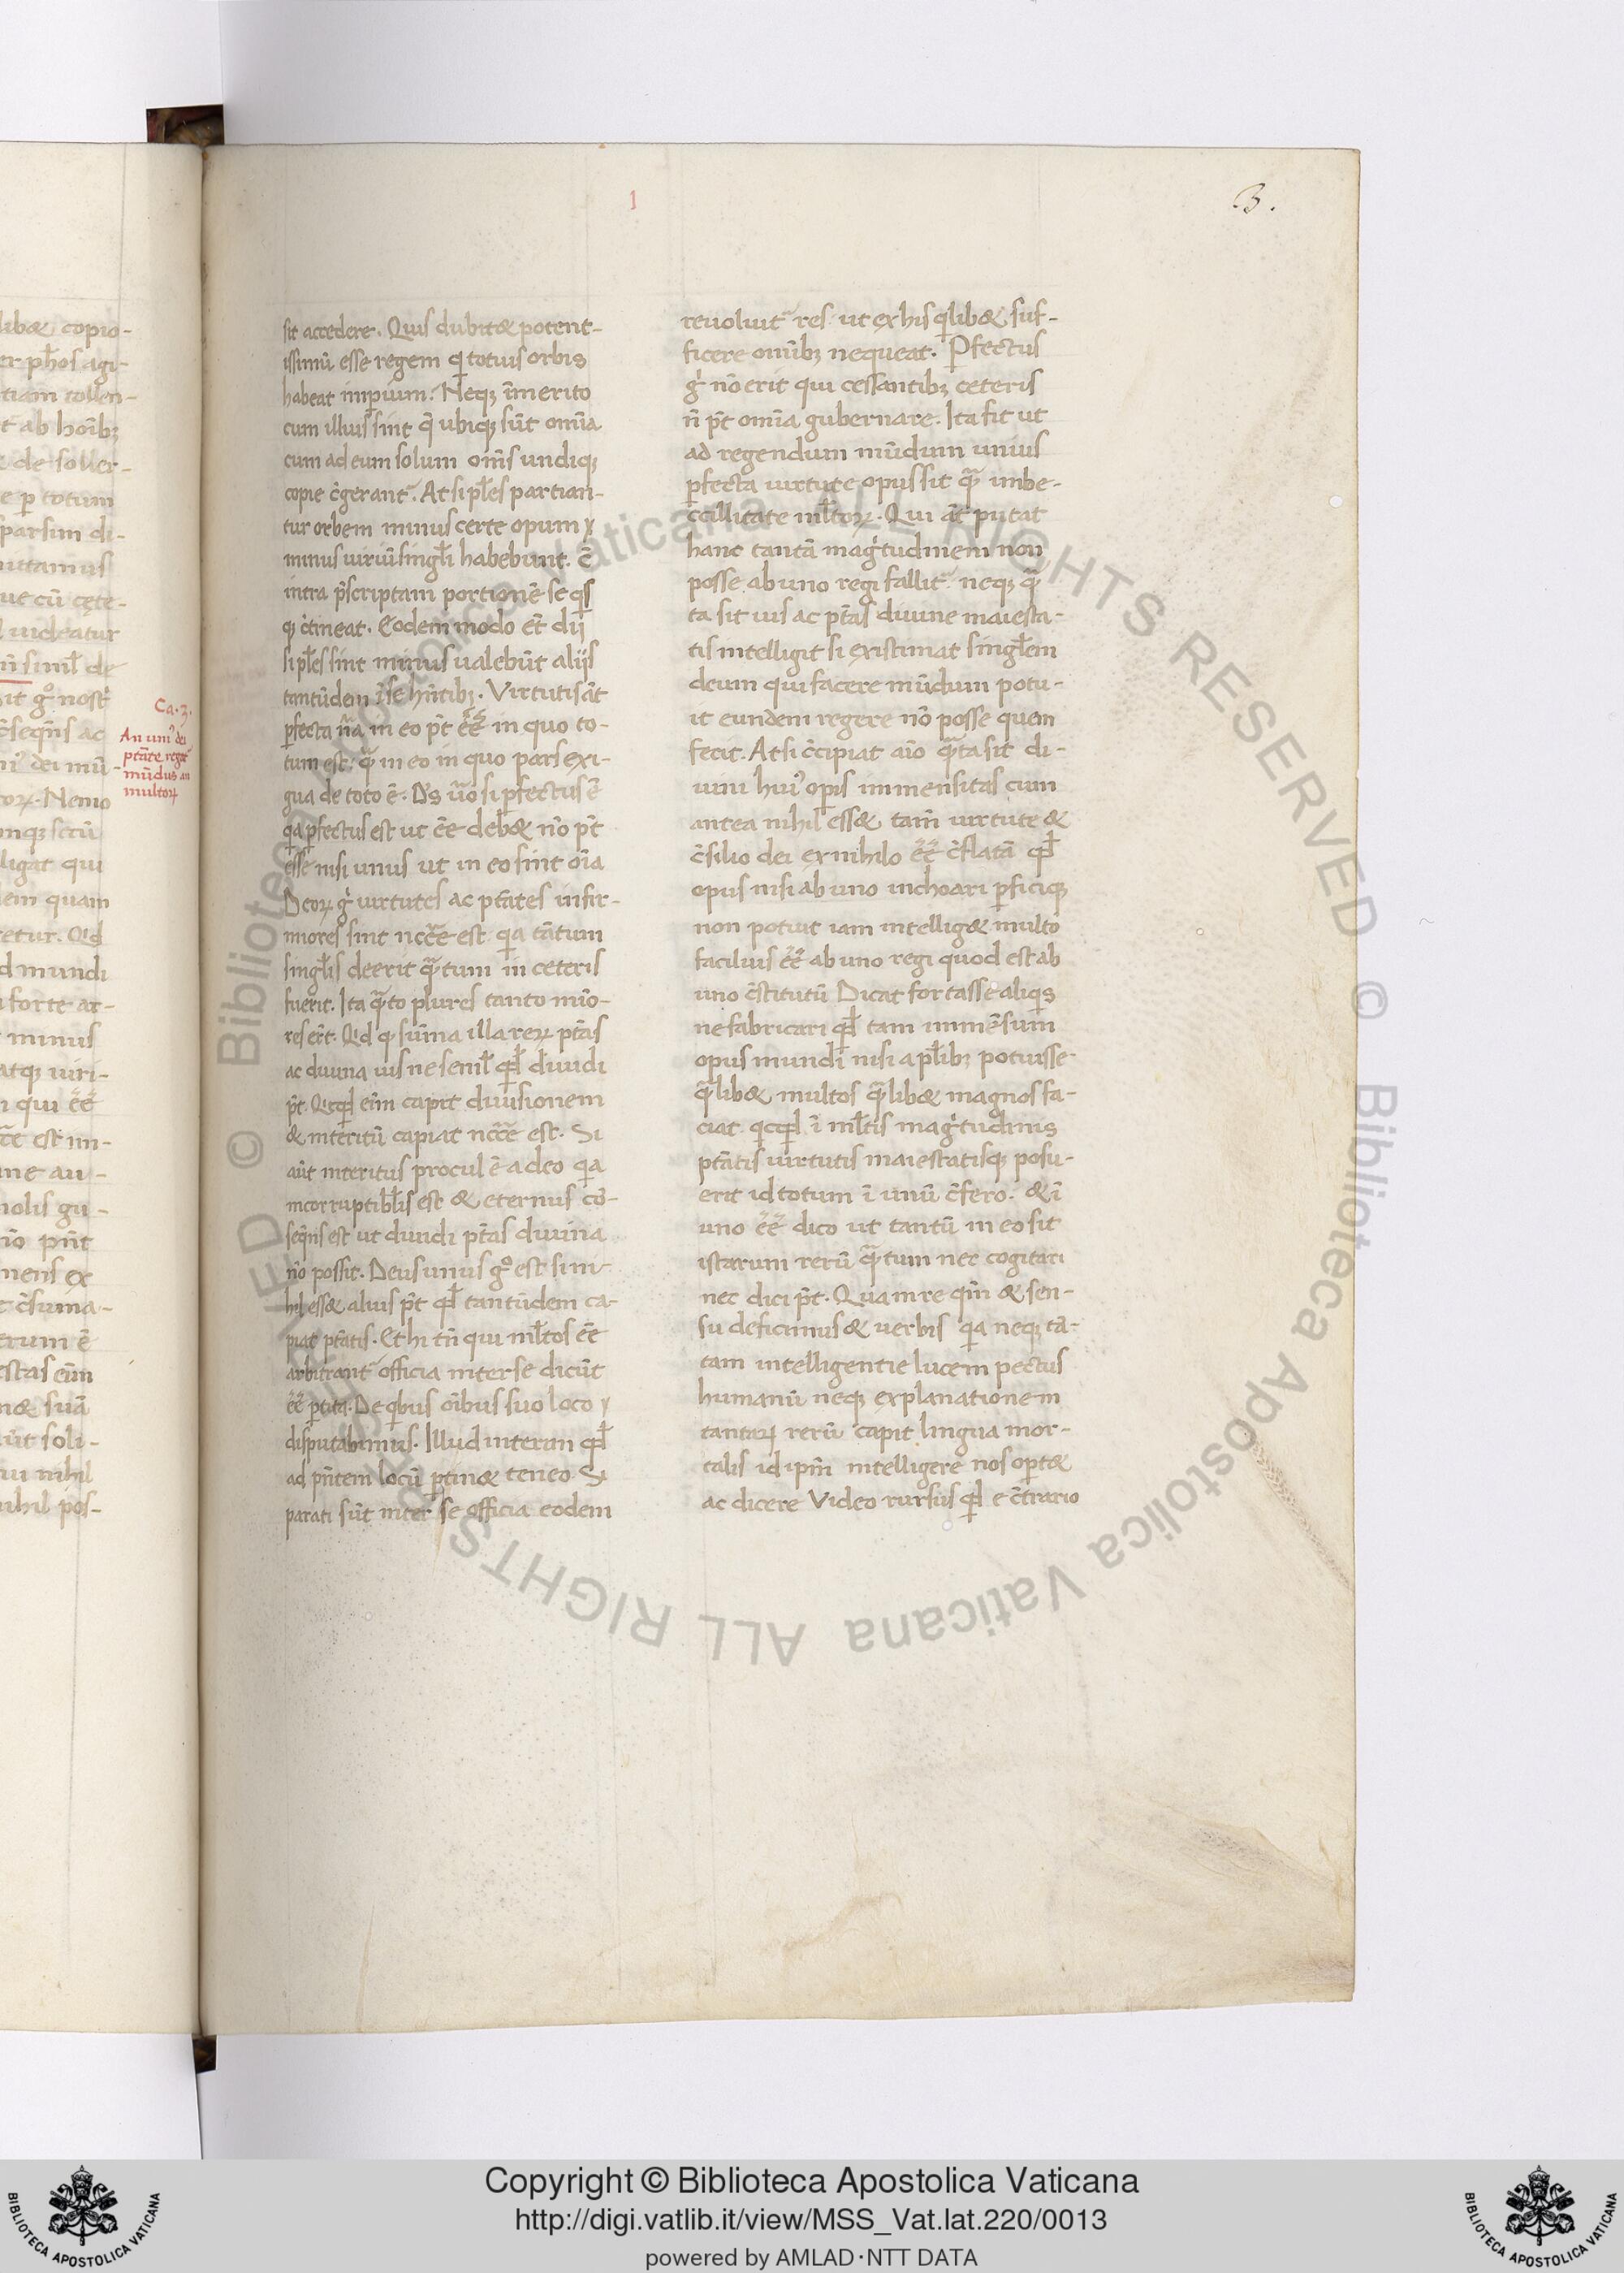 1
3.
libet copio-
er ph̄os agi-
tiam tollen-
t ab hoīb;
de soller-
e ꝑ totum
sparsim di-
mittamus
ut cū cete-
uideatur
n̄ simł de
sit gͦ nostͥ
c̄seqn̄s ac
dei mū-
toꝝ. Nemo
ligat qui
em quam
retur. Qd
d mundi
forte ar-
minus
atq; uiri-
qui ēē
cē est im-
ne au-
molis gu-
iō pn̄t
mens ex
c̄suma-
erum ē
estas eīm
suā
ūt soli-
ui nihil
nihil pos-
Ca. 3.
An uniꝰ dei
ptāte regat᷑
mūdus an
multoꝝ
sit accedere. Quis dubitet potent-
issimū esse regem qͥ totius orbis
habeat imꝑium. Neq; īmerito
cum illius sint q̄ ubiq; sūt omīa
cum ad eum solum om̄s undiq;
copie c̄gerant᷑. At si pl̄es partian-
tur orbem minus certe opum &
minus uiriū singłi habebunt. cē
intra p̄scriptam portionē se qͥs
q; c̄tineat. Eodem modo et̄ dij
si pl̄es sint minus ualebūt alijs
tantūdem ī se hn̄tib;. Virtutis āt
ꝑfecta nā in eo pt̄ ēē in quo to-
tum est qᷓ in eo in quo pars exi-
gua de toto ē. Ds̄ uͦo si ꝑfectus ē
qͥa ꝑfectus est ut ēē debet nō pt̄
esse nisi unus ut in eo sint oīa
Deoꝝ gͥ uirtutes ac ptātes infir-
miores sint nccē est qͥa tātum
singłis deerit qᷓtum in ceteris
fuerit. Ita qᷓto plures tanto mīo-
res er̄t. Qd̄ qͥ sūma illa reꝝ ptās
ac diuina uis ne semł qͥdē diuidi
pt̄. Qͥcqͥd eīm capit diuisionem
& interitū capiat nccē est. Si
aūt interitus procul ē a deo qͥa
incorruptibłis est & eternus cō-
seqn̄s est ut diuidi ptās diuina
nō possit. Deus unus gͦ est si ni-
hil esset alius pt̄ qd̄ tantūdem ca-
piat ptātis. Et hi tn̄ qui młtos ēē
arbitrant᷑ officia inter se dicūt
ēē ꝑtita. De qͥbus oībus suo loco &
disputabimus. Illud interim qd̄
ad pn̄tem locū ꝑtinet teneo. Si
parati sūt inter se officia eodem
reuoluit᷑ res ut ex his qͥlibet suf-
ficere omīb; nequeat. Pfectus
gͥ nō erit qui cessantib; ceteris
n̄ pt̄ omīa gubernare. Ita fit ut
ad regendum mūdum unius
ꝑfecta uirtute opus sit qᷓ imbe-
cillitate młtoꝝ. Qui āt putat
hanc tantā magͥtudinem non
posse ab uno regi fallit᷑ neq; qᷓ
ta sit uis ac ptās diuine maiesta-
tis intelligit si existimat singłem
deum qui facere mūdum potu-
it eundem regere nō posse quem
fecit. At si c̄cipiat aīo qᷓta sit di-
uini huiꝰ oꝑis immensitas cum
antea nihil esset tam̄ uirtute &
c̄silio dei ex nihilo ēē c̄flatā qd̄
opus nisi ab uno inchoari ꝑficiq;
non potuit iam intelliget multo
facilius ēē ab uno regi quod est ab
uno c̄stitutū Dicat fortasse aliqͥs
ne fabricari qͥdē tam immēsum
opus mundi nisi a pl̄ib; potuisse
qᷓlibet multos qᷓlibet magnos fa-
ciat qͥcqͥd ī młtis magͥtudinis
ptātis uirtutis maiestatisq; posu-
erit id totum ī unū c̄fero. & ī
uno ēē dico ut tantū in eo sit
istarum rerū qᷓtum nec cogitari
nec dici pt̄. Quam re qm̄ & sen-
su deficimus & uerbis qͥa neq; tā-
tam intelligentie lucem pectus
humanū neq; explanationem
tantaꝝ rerū capit lingua mor-
talis id ipm̄ intelligere nos oꝑtet
ac dicere Video rursus qͥd e c̄trario
© Biblioteca Apostolica Vaticana ALL RIGHTS RESERVED © Biblioteca Apostolica Vaticana ALL RIGHTS RESERVED
BIBLIOTECA APOSTOLICA VATICANA
Copyright © Biblioteca Apostolica Vaticana
http://digi.vatlib.it/view/MSS_Vat.lat.220/0013
powered by AMLAD·NTT DATA
BIBLIOTECA APOSTOLICA VATICANA